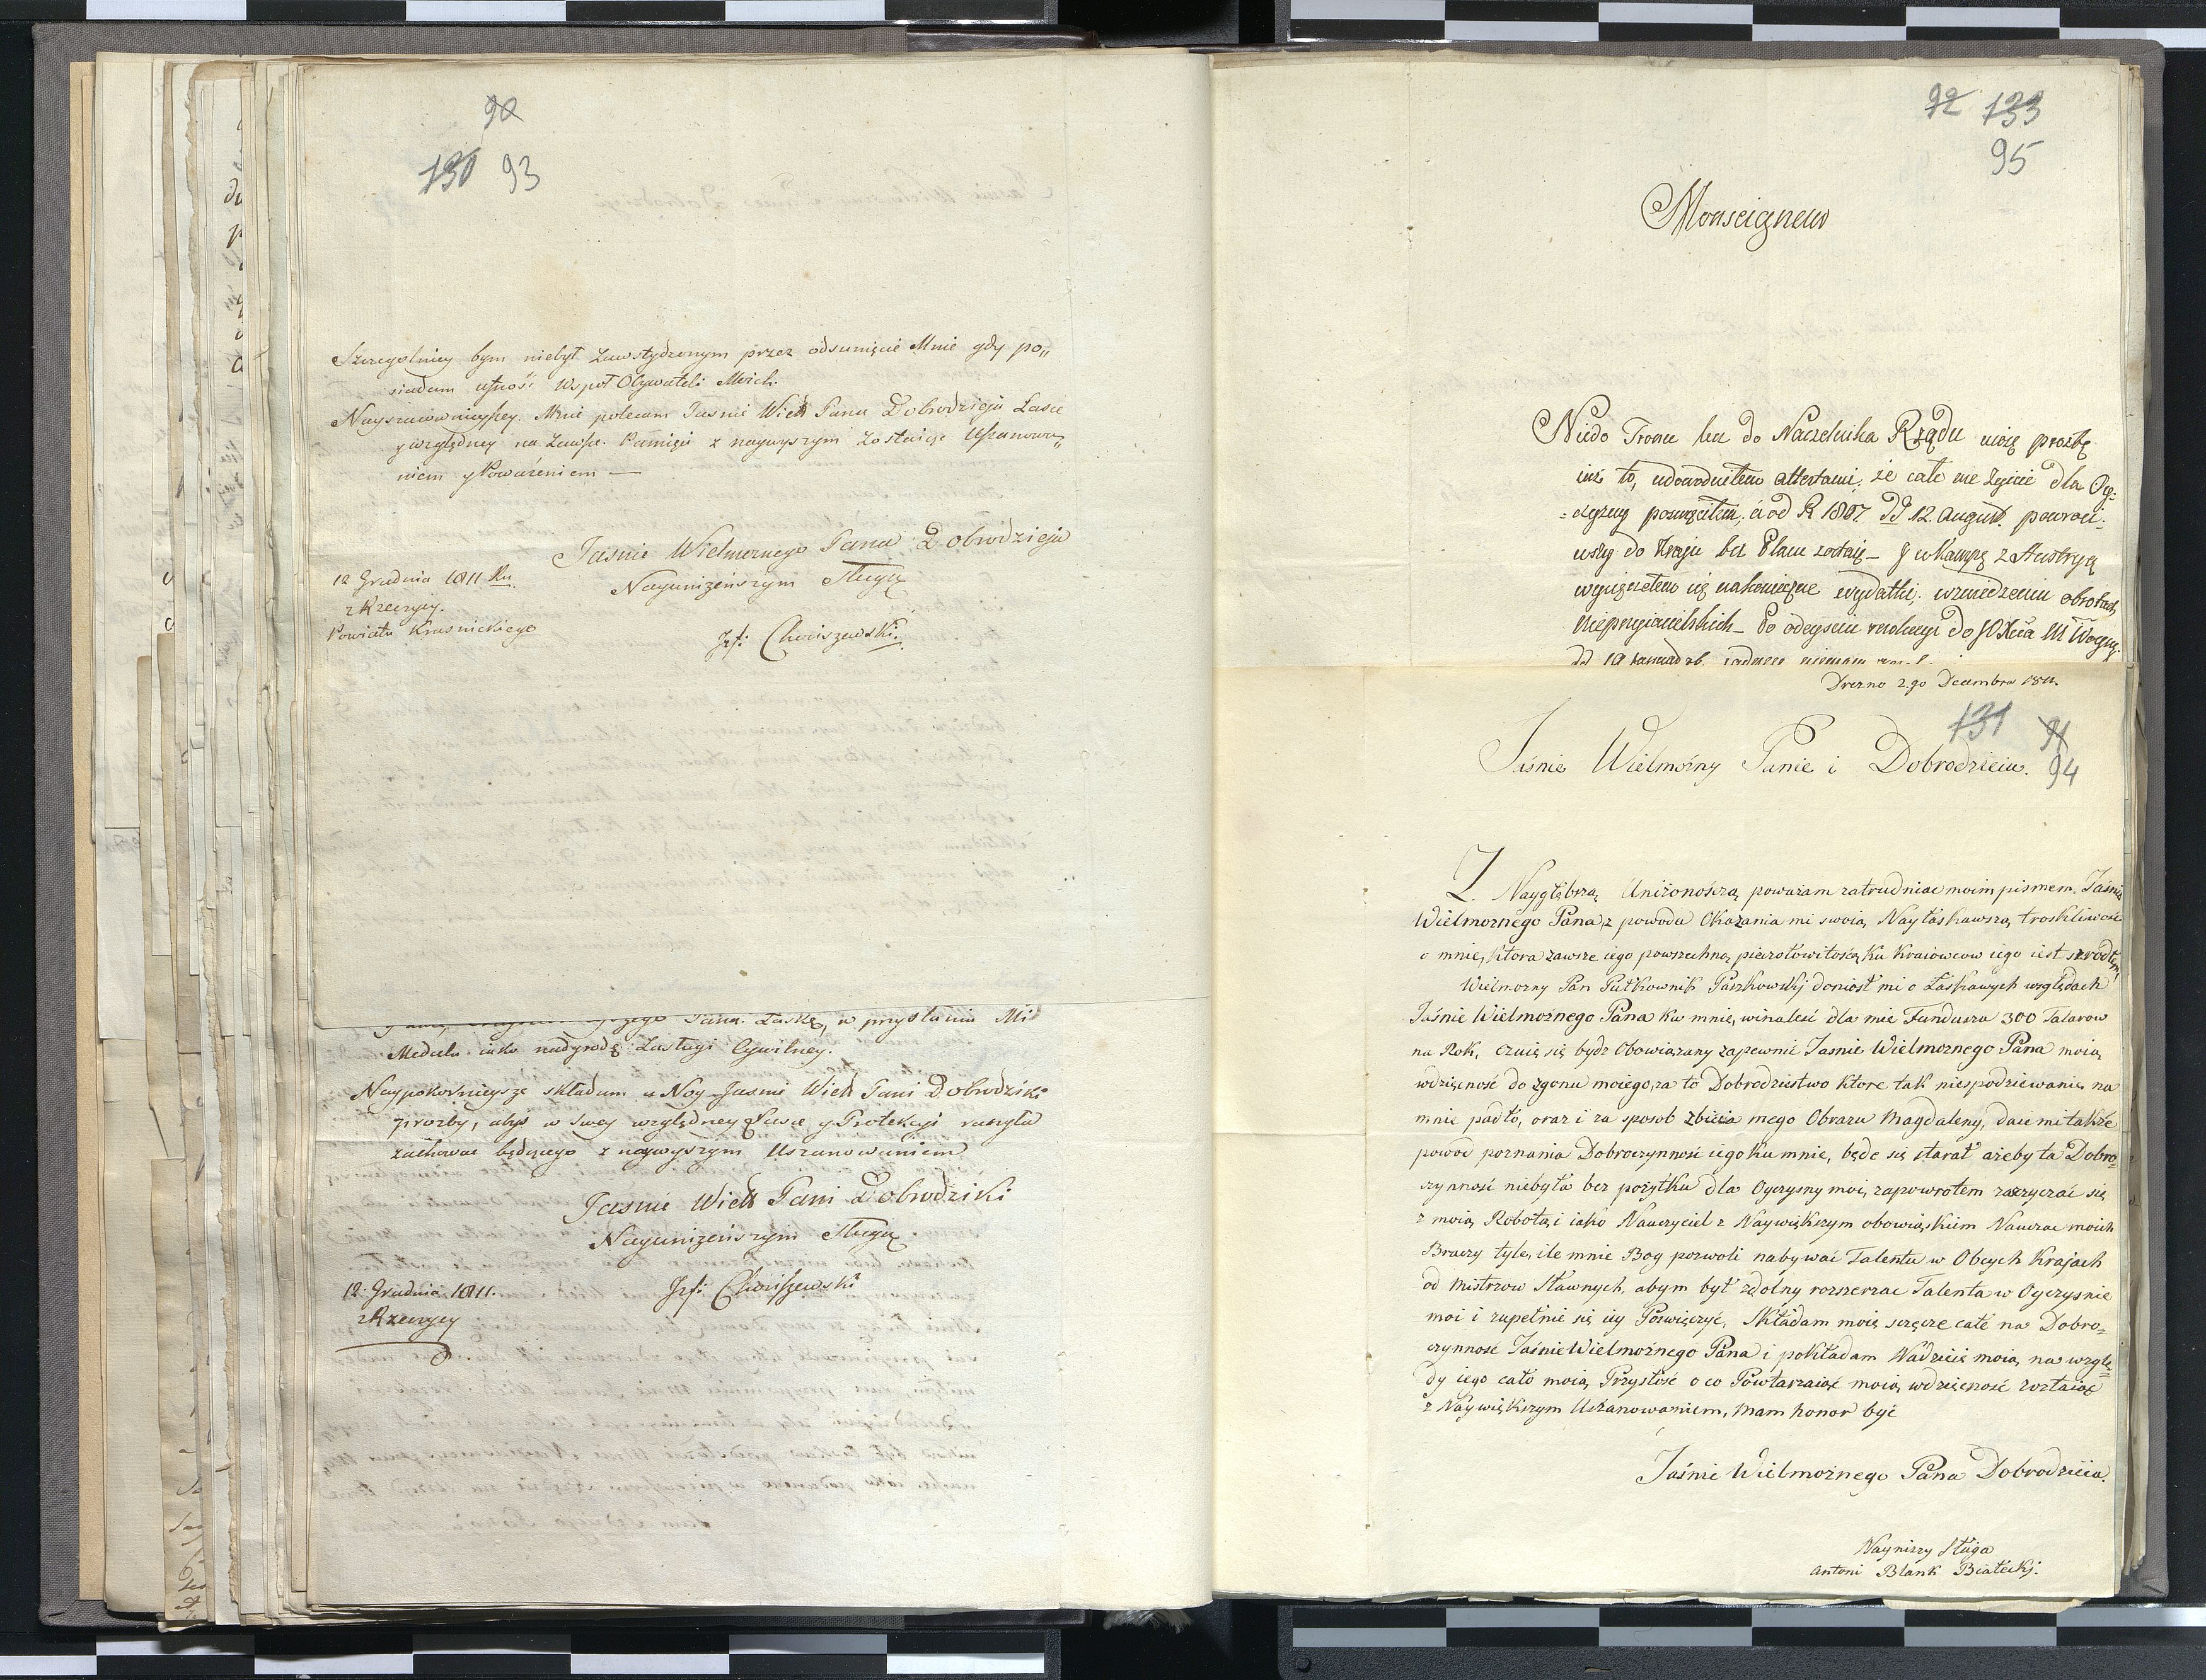 90
130 93
Szczegolniey bym niebył zawstydzonym przez odsunięcie Mnie gdy po„
siadam ufność Wspoł Obywateli Moich.
Nayszacownieyszey. Mnie polecam Jaśnie Wielo Pana Dobrodzieja Łasce
y względney na zawsze Pamięci z naywyszym zostaiąc Uszanowa„
niem y Poważeniem —
Jasnie Wielmożnego Pana Dobrodzieja
Nayunizeńszym Sługą
12 Grudnia 1811 Ru
z Krzeczyey.
Powiatu Krasnickiego
Jzf: Chwiszewski.
Pana Łaskę, w przysłaniu Mi
Medalu iako nadgrodę Zasługi Cywilney.
Naypokornieysze składam u Nog Jasnie Wielo Pani Dobrodziki
prozby, abyś w Swey względney Łasce y Protekcyi raczyła
zachować będącego z naywyszym Uszanowaniem
Jasnie Wielo Pani Dobrodziki
Nayunizeńszym Sługą
12 Grudnia 1811.
z Krzeczyey
Jzf: Chwiszewski
92 133
95
Monseigneur
Niedo Tronu lecz do Naczelnika Rządu niosę prozbę
iuż to, udowodniłem attestami, że całe me życie dla Oy-
-czyzny poswięciłem; a od R 1807 dd 12. August. powroci-
wszy do Kraju bez Placu zostaię — y w Kampę z Austryą
wyciągnąłem się na konieczne wydatki; w zmiedzeniu obrotach
Nieprzyiacielskich — Po odeyściu do JO Xcia M Woyny.
dd 10 żadnego niemam
Drezno 2go Decembra 1811.
131 91
94
Jaśnie Wielmożny Panie i Dobrodzieiu.
Z Naygłębszą Uniżonością poważam zatrudniac moim pismem, Jaśnie
Wielmożnego Pana, z powodu Okazania mi swoią Nayłaskawszą troskliwość
o mnie, ktora zawsze iego powszechną pieczołowitością ku Kraiowcow iego iest szrodłem,
Wielmożny Pan Pułkownik Paszkowskj doniosł mi o Łaskawych względach
Jaśnie Wielmożnego Pana ku mnie, winalesć dla mie Fundusza 300 Talarow
na Rok, czuię się bydz Obowiązany zapewnić Jasnie Wielmożnego Pana moią
wdzięcność do zgonu moiego, za to Dobrodzieistwo ktore tak niespodziewanie na
mnie padło, oraz i za sposob zbicia mego Obrazu Magdaleny, daie mi także
powod poznania Dobroczynność iego ku mnie, będe się starał ażeby ta Dobro-
czynność niebyła bez pożytku dla Oyczyzny moi, zapowrotem zaszyczać się
z moią Robotą i iako Nauczyciel z Naywiększym obowiąskiem Nauczac moich
Braczy tyle, ile mnie Bog pozwoli nabywać Talenta w Obcych Krajach
od Mistrzow Sławnych, abym był zdolny rozszerzac Talenta w Oyczysnie
moi i zupełnie się iey Poswięczyć, Składam moie szczęcze całe na Dobro-
czynność Jaśnie Wielmożnego Pana i pokładam Nadzieię moią na wzglę-
dy iego cało moią Przyszłość o co Powtarzaiąc moią wdzięcność zostaiąc
z Naywiększym Uszanowaniem, mam honor być
Jaśnie Wielmożnego Pana Dobrodzieia.
Nayniższy Sługa
Antoni Blank Białeckj.